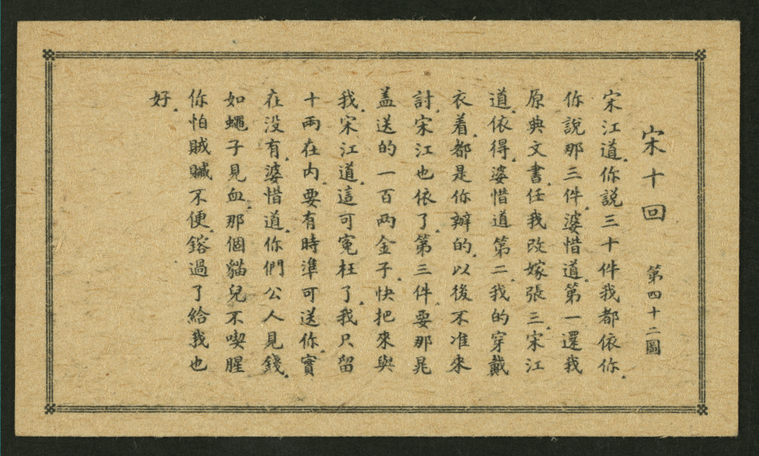 宋十回 第四十二圖
宋江道.你說三十件我都依你.
你說那三件.婆惜道.第一還我
原典文書.任我改嫁張三.宋江
道.依得.婆惜道.第二.我的穿戴
衣着.都是你辦的.以後不准來
討.宋江也依了.第三件.要那晁
盖送的一百兩金子.快把來與
我.宋江道.這可冤枉了.我只留
十兩在內.要有時準可送你.實
在没有.婆惜道.你們公人見錢.
如蠅子見血.那個貓兒不喫腥.
你怕賊贓不便.鎔過了給我也
好.